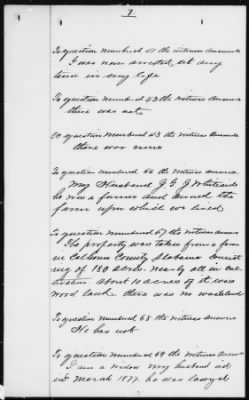 7
To question numbered 41 the witness answers
I was never arrested at any
time in my life
To question numbered 42 the witness answers
there was not
To question numbered 43 the witness answers
there was none
To question numbered 66 the witness answers
My Husband J G J Whiteside
he was a farmer and owned the
farm upon which we lived
To question numbered 67 the witness answers
The property was taken from a farm
in Calhoun County Alabama consist
ing of 180 acres nearly all in cul
tivation about 10 acres of it was
wood land there was no wasteland
To question numbered 68 the witness answers
He has not
To question numbered 69 the witness answers
I am a widow my husband died
in March 1877. he was